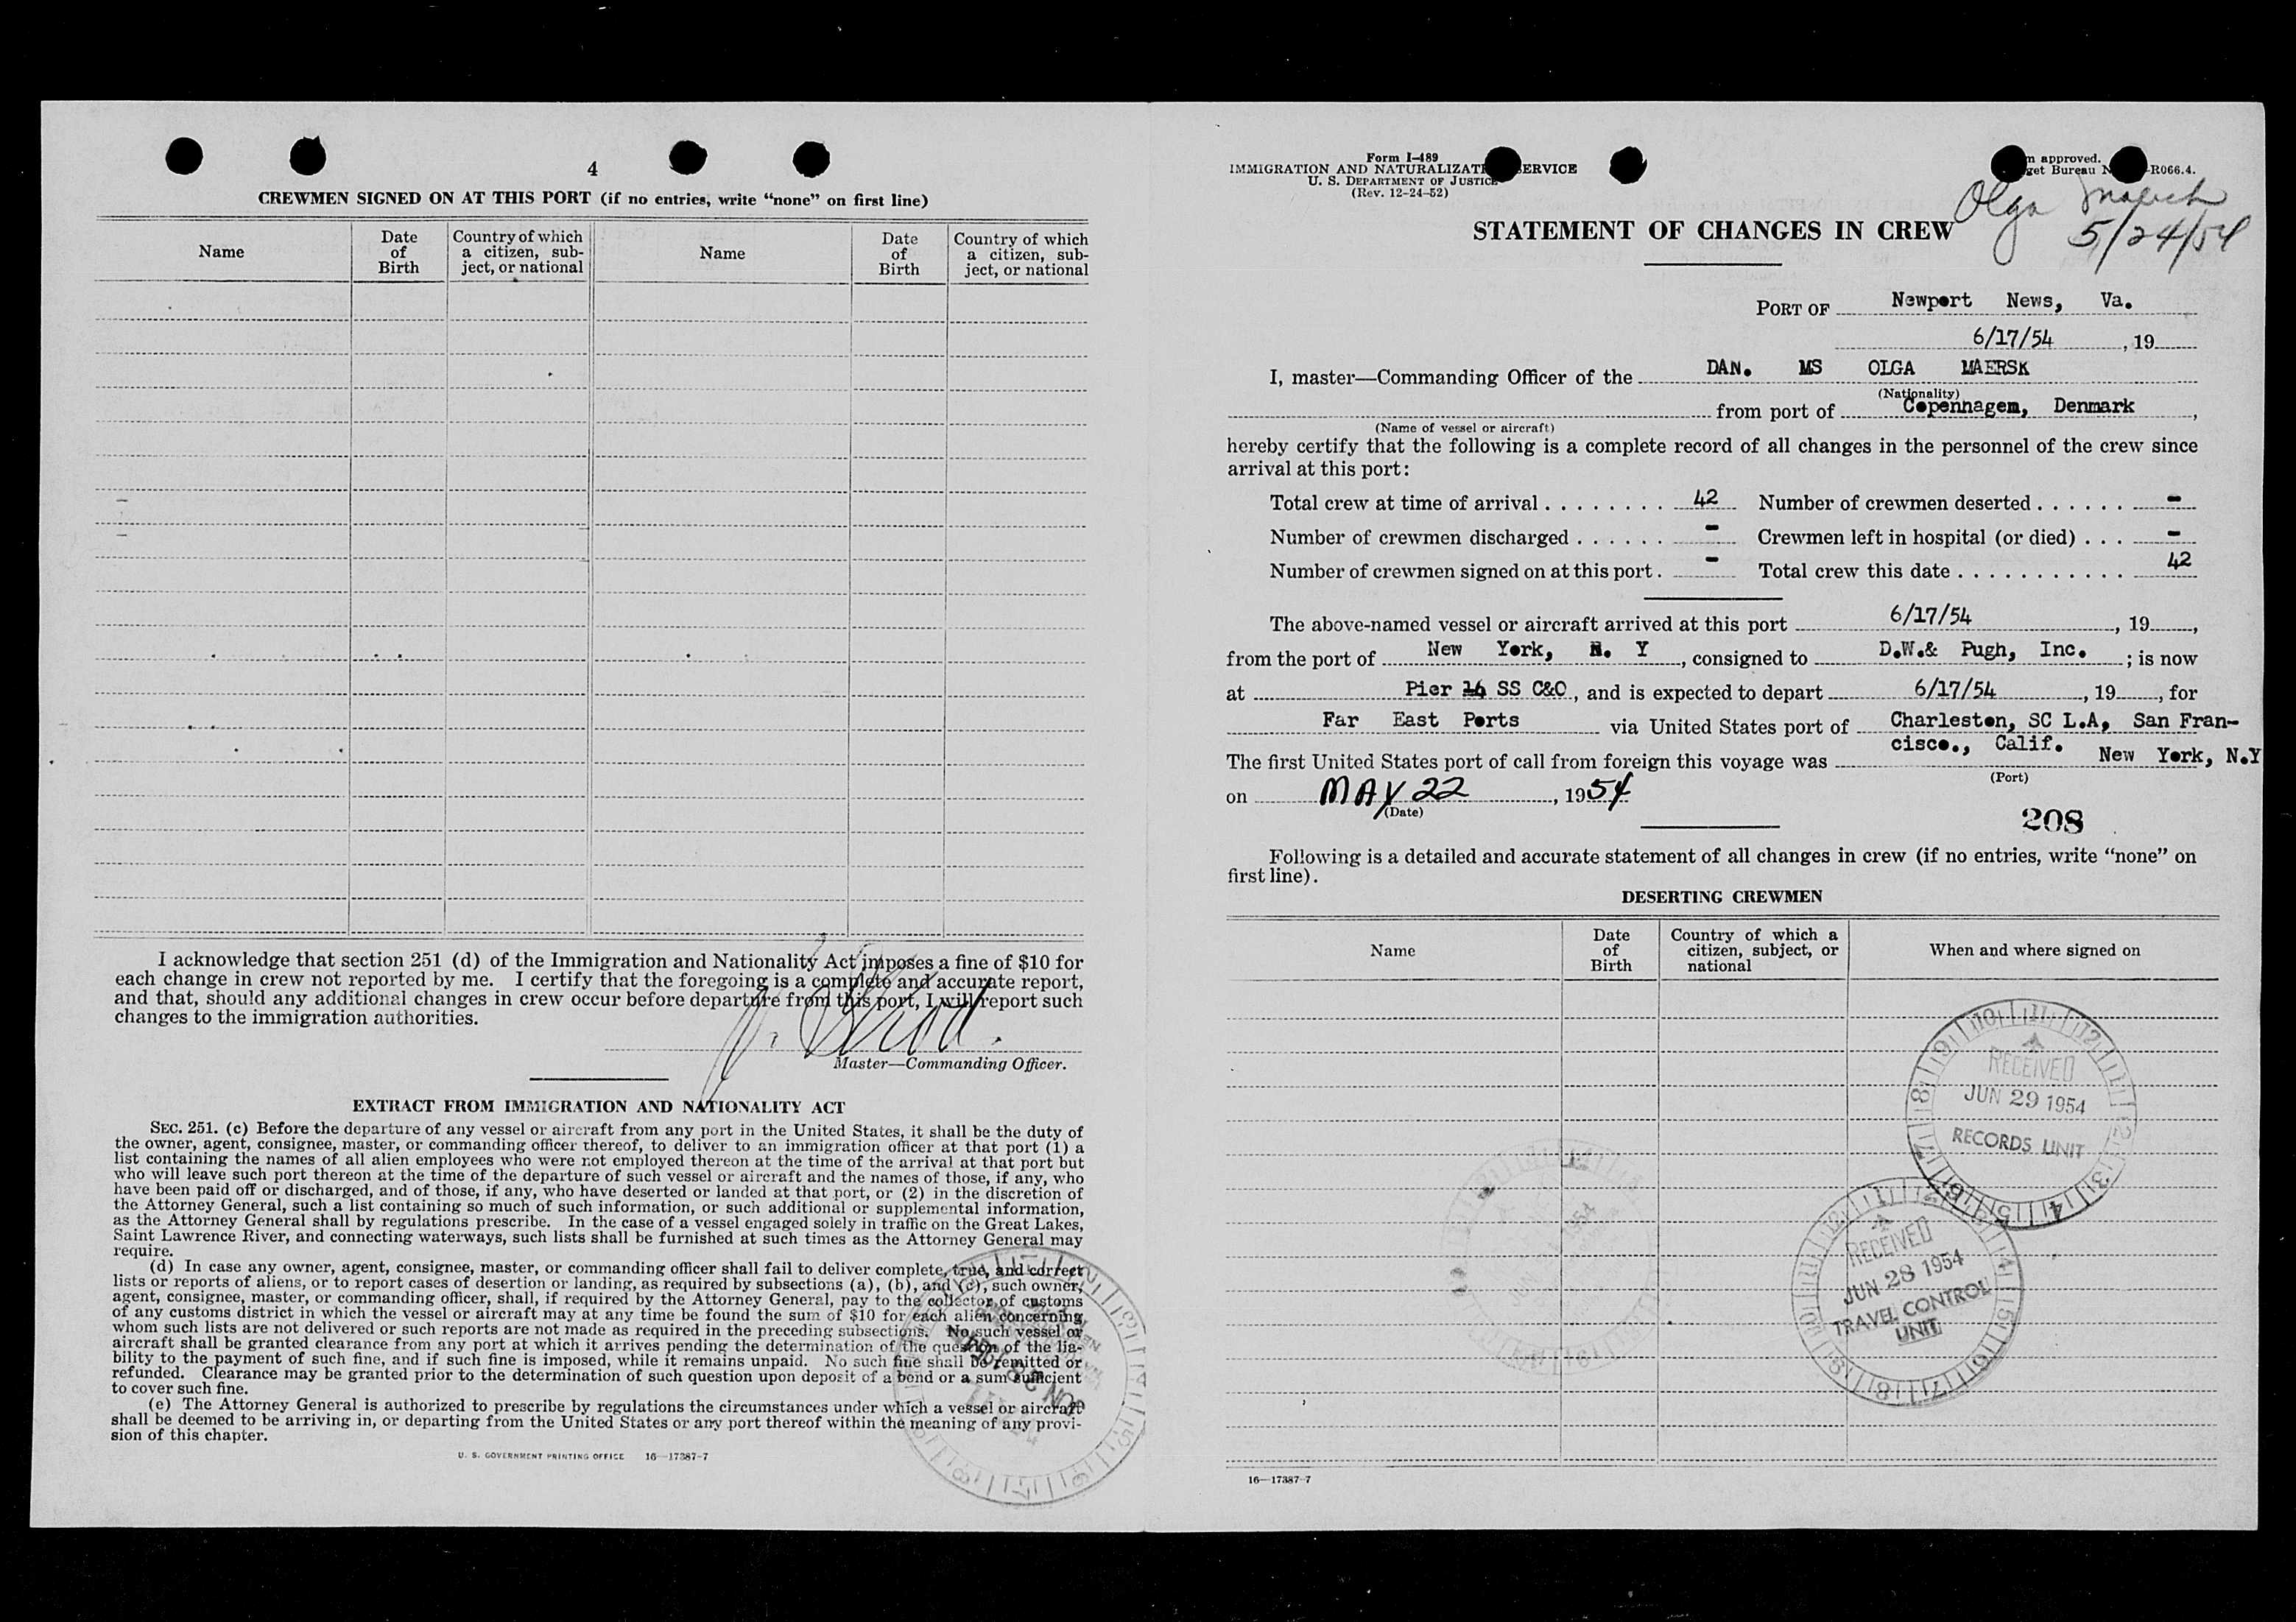 4
CREWMEN SIGNED ON AT THIS PORT (if no entries, write “none” on first line)
Name
Date of Birth
Country of which a citizen, sub-ject, or national
Name
Date of Birth
Country of which a citizen, sub-ject, or national
I acknowledge that section 251 (d) of the Immigration and Nationality Act imposes a fine of $10 for
each change in crew not reported by me. I certify that the foregoing is a complete and accurate report,
and that, should any additional changes in crew occur before departure from this port, I will report such
changes to the immigration authorities.
Master—Commanding Officer.
EXTRACT FROM IMMIGRATION AND NATIONALITY ACT
SEC. 251. (c) Before the departure of any vessel or aircraft from any port in the United States, it shall be the duty of
the owner, agent, consignee, master, or commanding officer thereof, to deliver to an immigration officer at that port (1) a
list containing the names of all alien employees who were not employed thereon at the time of the arrival at that port but
who will leave such port thereon at the time of the departure of such vessel or aircraft and the names of those, if any, who
have been paid off or discharged, and of those, if any, who have deserted or landed at that port, or (2) in the discretion of
the Attorney General, such a list containing so much of such information, or such additional or supplemental information,
as the Attorney General shall by regulations prescribe. In the case of a vessel engaged solely in traffic on the Great Lakes,
Saint Lawrence River, and connecting waterways, such lists shall be furnished at such times as the Attorney General may
require.
(d) In case any owner, agent, consignee, master, or commanding officer shall fail to deliver complete, true, and correct
lists or reports of aliens, or to report cases of desertion or landing, as required by subsections (a), (b), and (c), such owner,
agent, consignee, master, or commanding officer, shall, if required by the Attorney General, pay to the collector of customs
of any customs district in which the vessel or aircraft may at any time be found the sum of $10 for each alien concerning
whom such lists are not delivered or such reports are not made as required in the preceding subsections. No such vessel or
aircraft shall be granted clearance from any port at which it arrives pending the determination of the question of the lia-
bility to the payment of such fine, and if such fine is imposed, while it remains unpaid. No such fine shall be remitted or
refunded. Clearance may be granted prior to the determination of such question upon deposit of a bond or a sum sufficient
to cover such fine.
(e) The Attorney General is authorized to prescribe by regulations the circumstances under which a vessel or aircraft
shall be deemed to be arriving in, or departing from the United States or any port thereof within the meaning of any provi-
sion of this chapter.
U. S. GOVERNMENT PRINTING OFFICE 16—17387-7
Form I-489
IMMIGRATION AND NATURALIZATI SERVICE
U. S. DEPARTMENT OF JUSTICE
(Rev. 12-24-52)
m approved.
get Bureau N -R066.4.
Olga
5/24/54
STATEMENT OF CHANGES IN CREW
PORT OF Newport News, Va.
6/17/54, 19
I, master—Commanding Officer of the DAN. MS OLGA MAERSK
(Nationality)
from port of Copenhagen, Denmark,
(Name of vessel or aircraft)
hereby certify that the following is a complete record of all changes in the personnel of the crew since
arrival at this port:
Total crew at time of arrival . . . . . . . . 42 Number of crewmen deserted . . . . . . -
Number of crewmen discharged . . . . . . - Crewmen left in hospital (or died) . . . -
Number of crewmen signed on at this port . - Total crew this date . . . . . . . . . . . 42
The above-named vessel or aircraft arrived at this port 6/17/54, 19,
from the port of New York, N. Y, consigned to D.W.& Pugh, Inc. ; is now
at Pier 16 SS C&O, and is expected to depart 6/17/54, 19, for
Far East Ports via United States port of Charleston, SC L.A, San Fran-
cisco., Calif.
The first United States port of call from foreign this voyage was New York, N.Y
(Port)
on MAY 22, 1954
(Date)
208
Following is a detailed and accurate statement of all changes in crew (if no entries, write “none” on
first line).
DESERTING CREWMEN
Name
Date of Birth
Country of which a citizen, subject, or national
When and where signed on
RECEIVED
JUN 29 1954
RECORDS UNIT
RECEIVED
JUN 28 1954
TRAVEL CONTROL
UNIT
16—17387-7